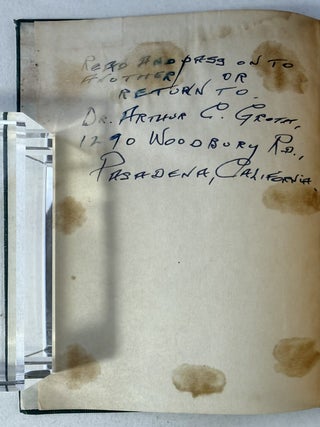 READ AND PASS ON TO
ANOTHER, OR
RETURN TO.
DR. ARTHUR C. GROTH,
1290 WOODBURY RD.,
PASADENA, CALIFORNIA.